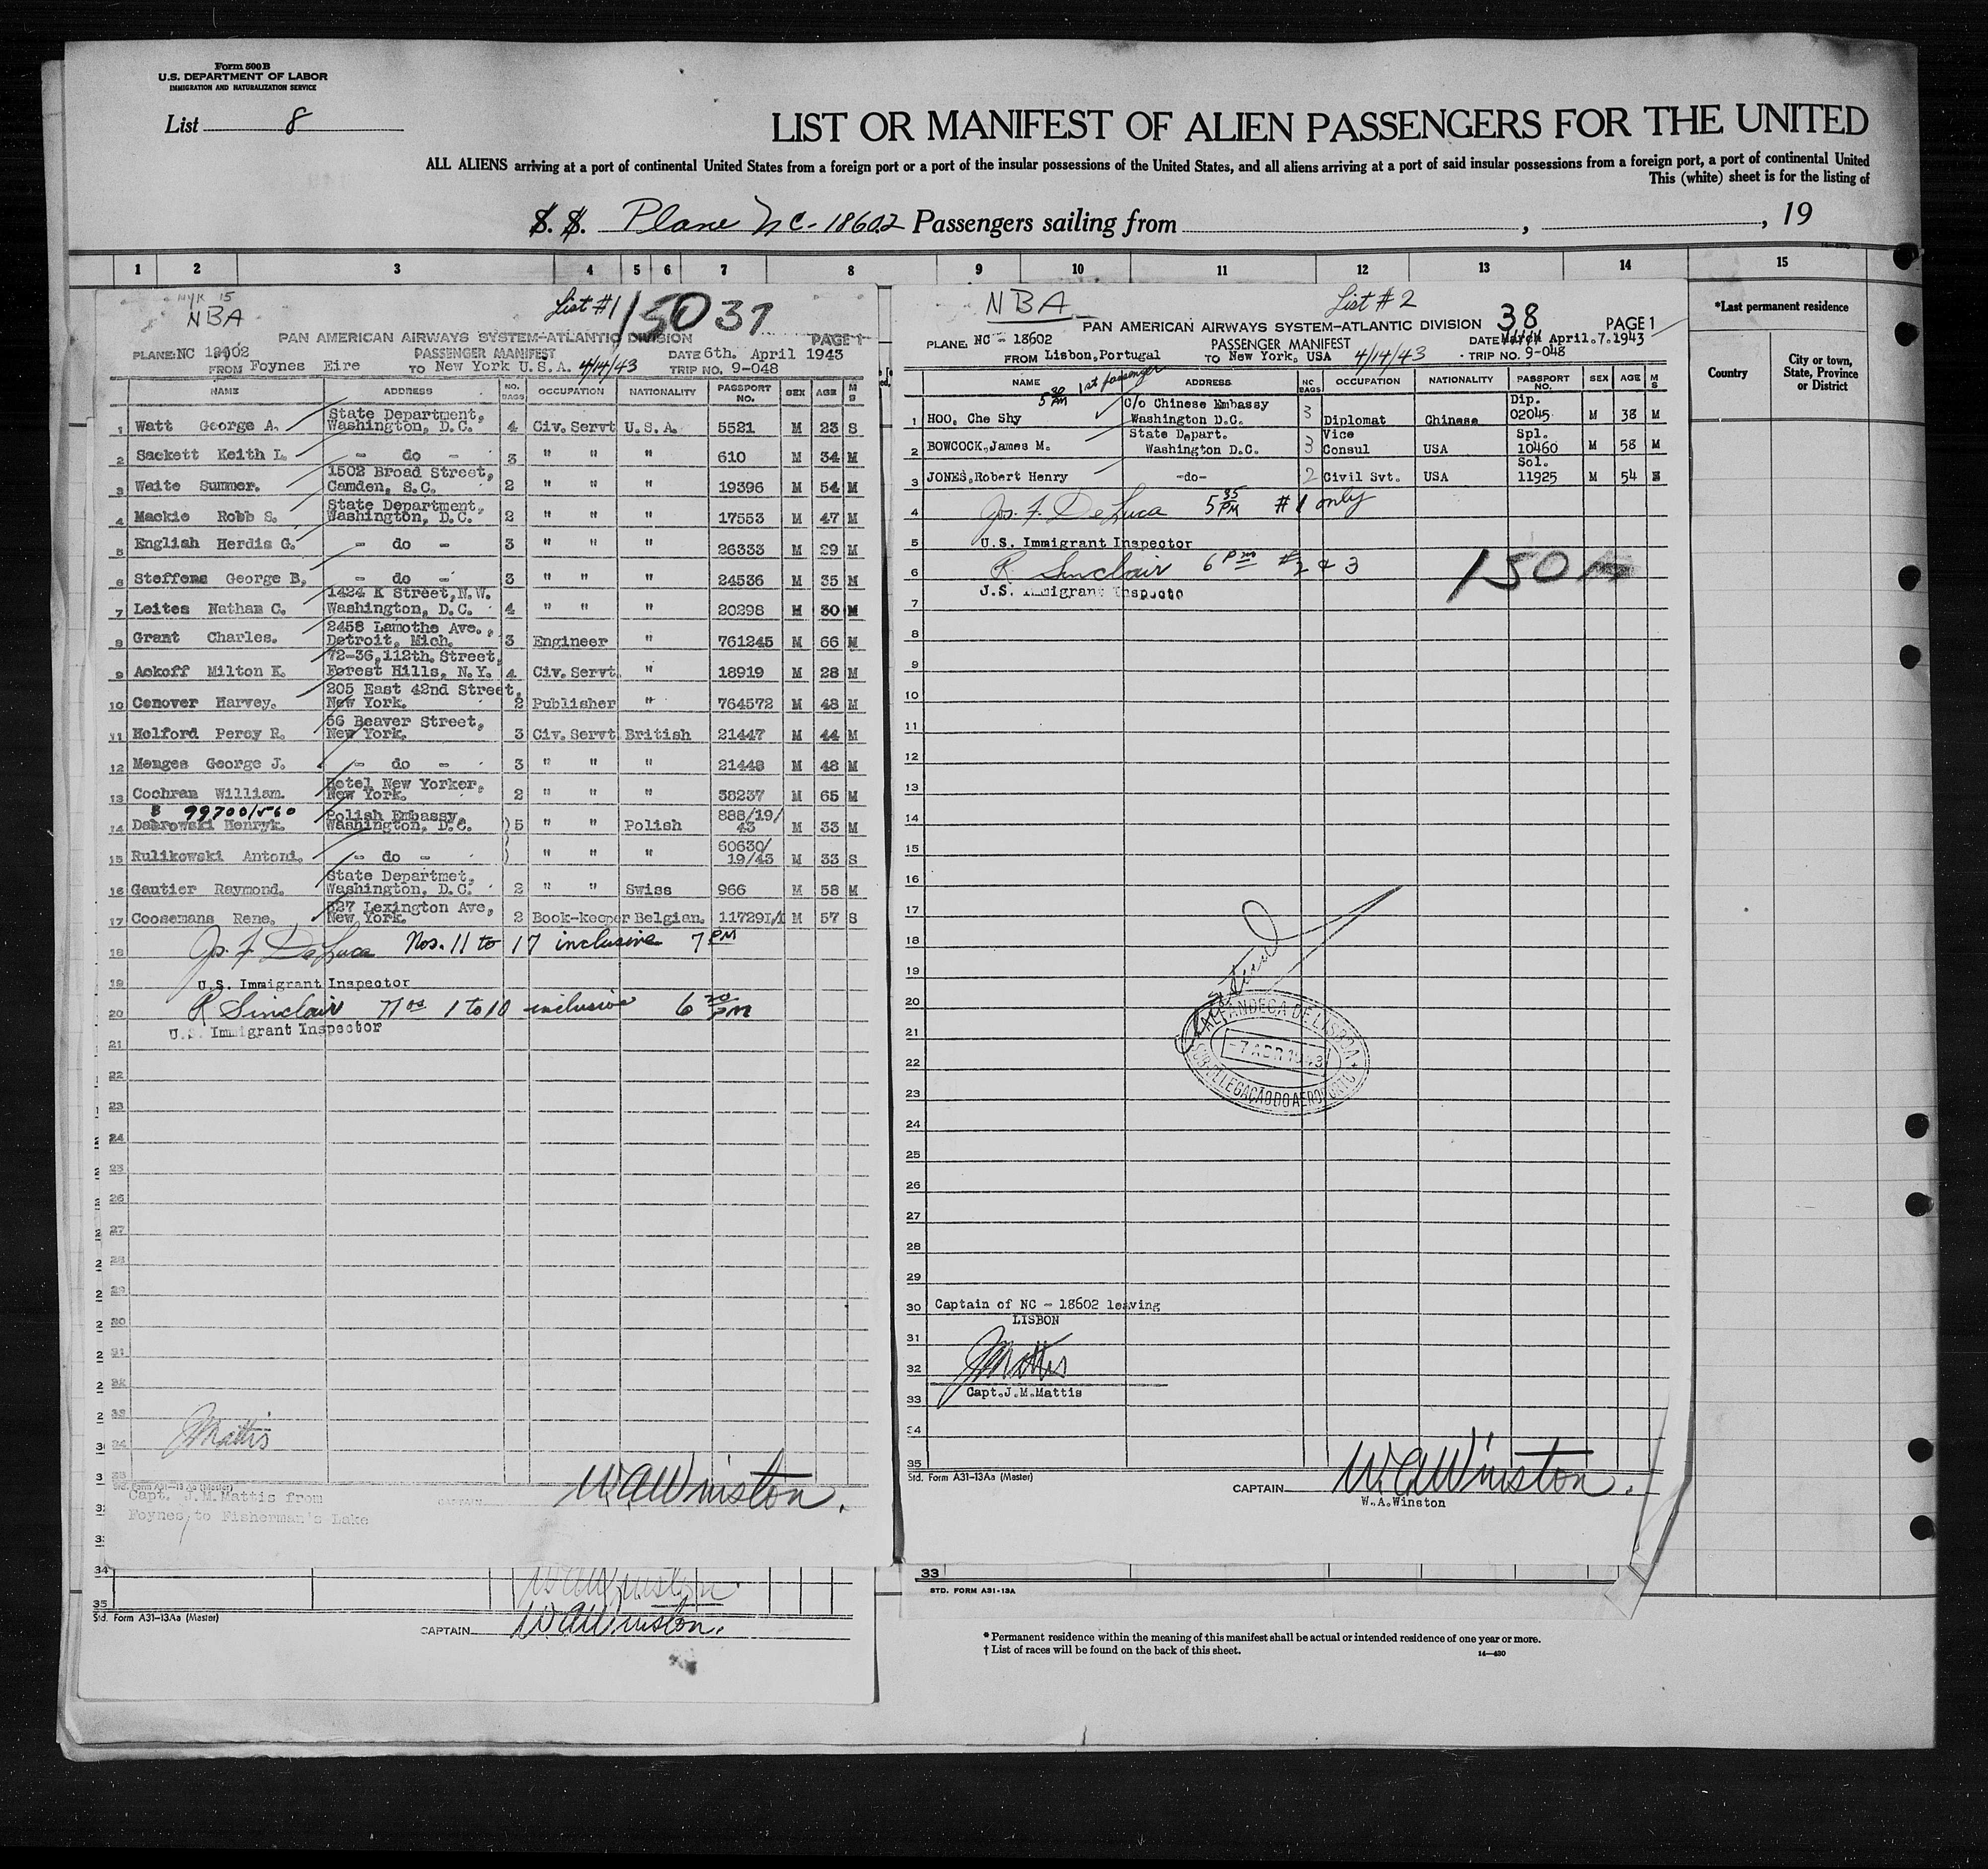 Form 500 B
U.S. DEPARTMENT OF LABOR
IMMIGRATION AND NATURALIZATION SERVICE
List 8
LIST OR MANIFEST OF ALIEN PASSENGERS FOR THE UNITED
ALL ALIENS arriving at a port of continental United States from a foreign port or a port of the insular possessions of the United States, and all aliens arriving at a port of said insular possessions from a foreign port, a port of continental United
This (white) sheet is for the listing of
S. S. Plane NC-18602 Passengers sailing from , , 19
1 2 3 4 5 6 7 8 9 10 11 12 13 14 15
*Last permanent residence
Country
City or town, State, Province or District
NYK 15
NBA
List #1 150 37
PAN AMERICAN AIRWAYS SYSTEM-ATLANTIC DIVISION PAGE 1
PLANE: NC 18602 PASSENGER MANIFEST DATE 6th. April 1943
FROM Foynes Eire TO New York U.S.A. 4/14/43 TRIP NO. 9-048
NAME ADDRESS NO. BAGS OCCUPATION NATIONALITY PASSPORT NO. SEX AGE M S
1 Watt George A. State Department, Washington, D.C. 4 Civ. Servt U.S.A. 5521 M 23 S
2 Sackett Keith L. - do - 3 " " " 610 M 34 M
3 Waite Sumner. 1502 Broad Street, Camden, S.C. 2 " " " 19396 M 54 M
4 Mackie Robb S. State Department, Washington, D.C. 2 " " " 17553 M 47 M
5 English Herdis G. - do - 3 " " " 26333 M 29 M
6 Steffens George B. - do - 3 " " " 24536 M 35 M
7 Leites Nathan C. 1424 K Street, N.W. Washington, D.C. 4 " " " 20298 M 30 M
8 Grant Charles. 2458 Lamothe Ave., Detroit, Mich. 3 Engineer " 761245 M 66 M
9 Ackoff Milton K. 72-36, 112th. Street, Forest Hills, N.Y. 4 Civ. Servt " 18919 M 28 M
10 Conover Harvey. 205 East 42nd Street, New York. 2 Publisher " 764572 M 48 M
11 Holford Percy R. 56 Beaver Street, New York. 3 Civ. Servt British 21447 M 44 M
12 Menges George J. - do - 3 " " " 21448 M 48 M
13 Cochran William. Hotel New Yorker, New York. 2 " " " 38237 M 65 M
99700/560
14 Dabrowski Henryk. Polish Embassy, Washington, D.C. )5 " " Polish 888/19/43 M 33 M
15 Rulikowski Antoni. - do - ) " " " 60630/19/43 M 33 S
16 Gautier Raymond. State Departmet, Washington, D.C. 2 " " Swiss 966 M 58 M
17 Coosemans Rene. 527 Lexington Ave, New York. 2 Book-keeper Belgian. 11729I/1 M 57 S
18 Jos. F. DeLuca Nos. 11 to 17 inclusive 7 PM
19 U.S. Immigrant Inspector
20 R Sinclair Nos 1 to 10 inclusive 6 30 PM
U.S. Immigrant Inspector
21
22
23
24
25
26
27
28
29
30
31
32
33
34
35
JMattis
Std. Form A31-13Aa (Master)
Capt. J.M.Mattis from
Foynes to Fisherman's Lake
CAPTAIN W.A.Winston.
34
35
W.A.Winston
Std. Form A31-13Aa (Master)
CAPTAIN W.A.Winston.
NBA
List #2
PAN AMERICAN AIRWAYS SYSTEM-ATLANTIC DIVISION 38 PAGE 1
PLANE NC - 18602 PASSENGER MANIFEST DATE March April.7.1943
FROM Lisbon,Portugal TO New York, USA 4/14/43 TRIP NO. 9-048
NAME ADDRESS NO BAGS OCCUPATION NATIONALITY PASSPORT NO. SEX AGE M S
5 30 PM 1st passenger
1 HOO, Che Shy C/o Chinese Embassy Washington D.C. 3 Diplomat Chinese Dip. 02045 M 38 M
2 BOWCOCK,James M. State Depart. Washington D.C. 3 Vice Consul USA Spl. 10460 M 58 M
3 JONES,Robert Henry -do- 2 Civil Svt. USA Sol. 11925 M 54
4 Jos. F. DeLuca 5 35 PM #1 only
5 U.S. Immigrant Inspector
6 R Sinclair 6 PM #2 & 3
150
U.S. Immigrant Inspecto
7
8
9
10
11
12
13
14
15
16
17
18
19
20
21
22
23
24
25
26
27
28
29
ALFANDEGA DE LISBOA
-7 ABR 1943
SUB-DELEGAÇÃO DO AEROPORTO
30 Captain of NC - 18602 leaving
LISBON
31
32 JMattis
Capt.J.M.Mattis
33
34
35
Std. Form A31-13Aa (Master)
CAPTAIN W.A.Winston.
W.A.Winston
33
STD. FORM A31-13A
* Permanent residence within the meaning of this manifest shall be actual or intended residence of one year or more.
† List of races will be found on the back of this sheet.
14-430